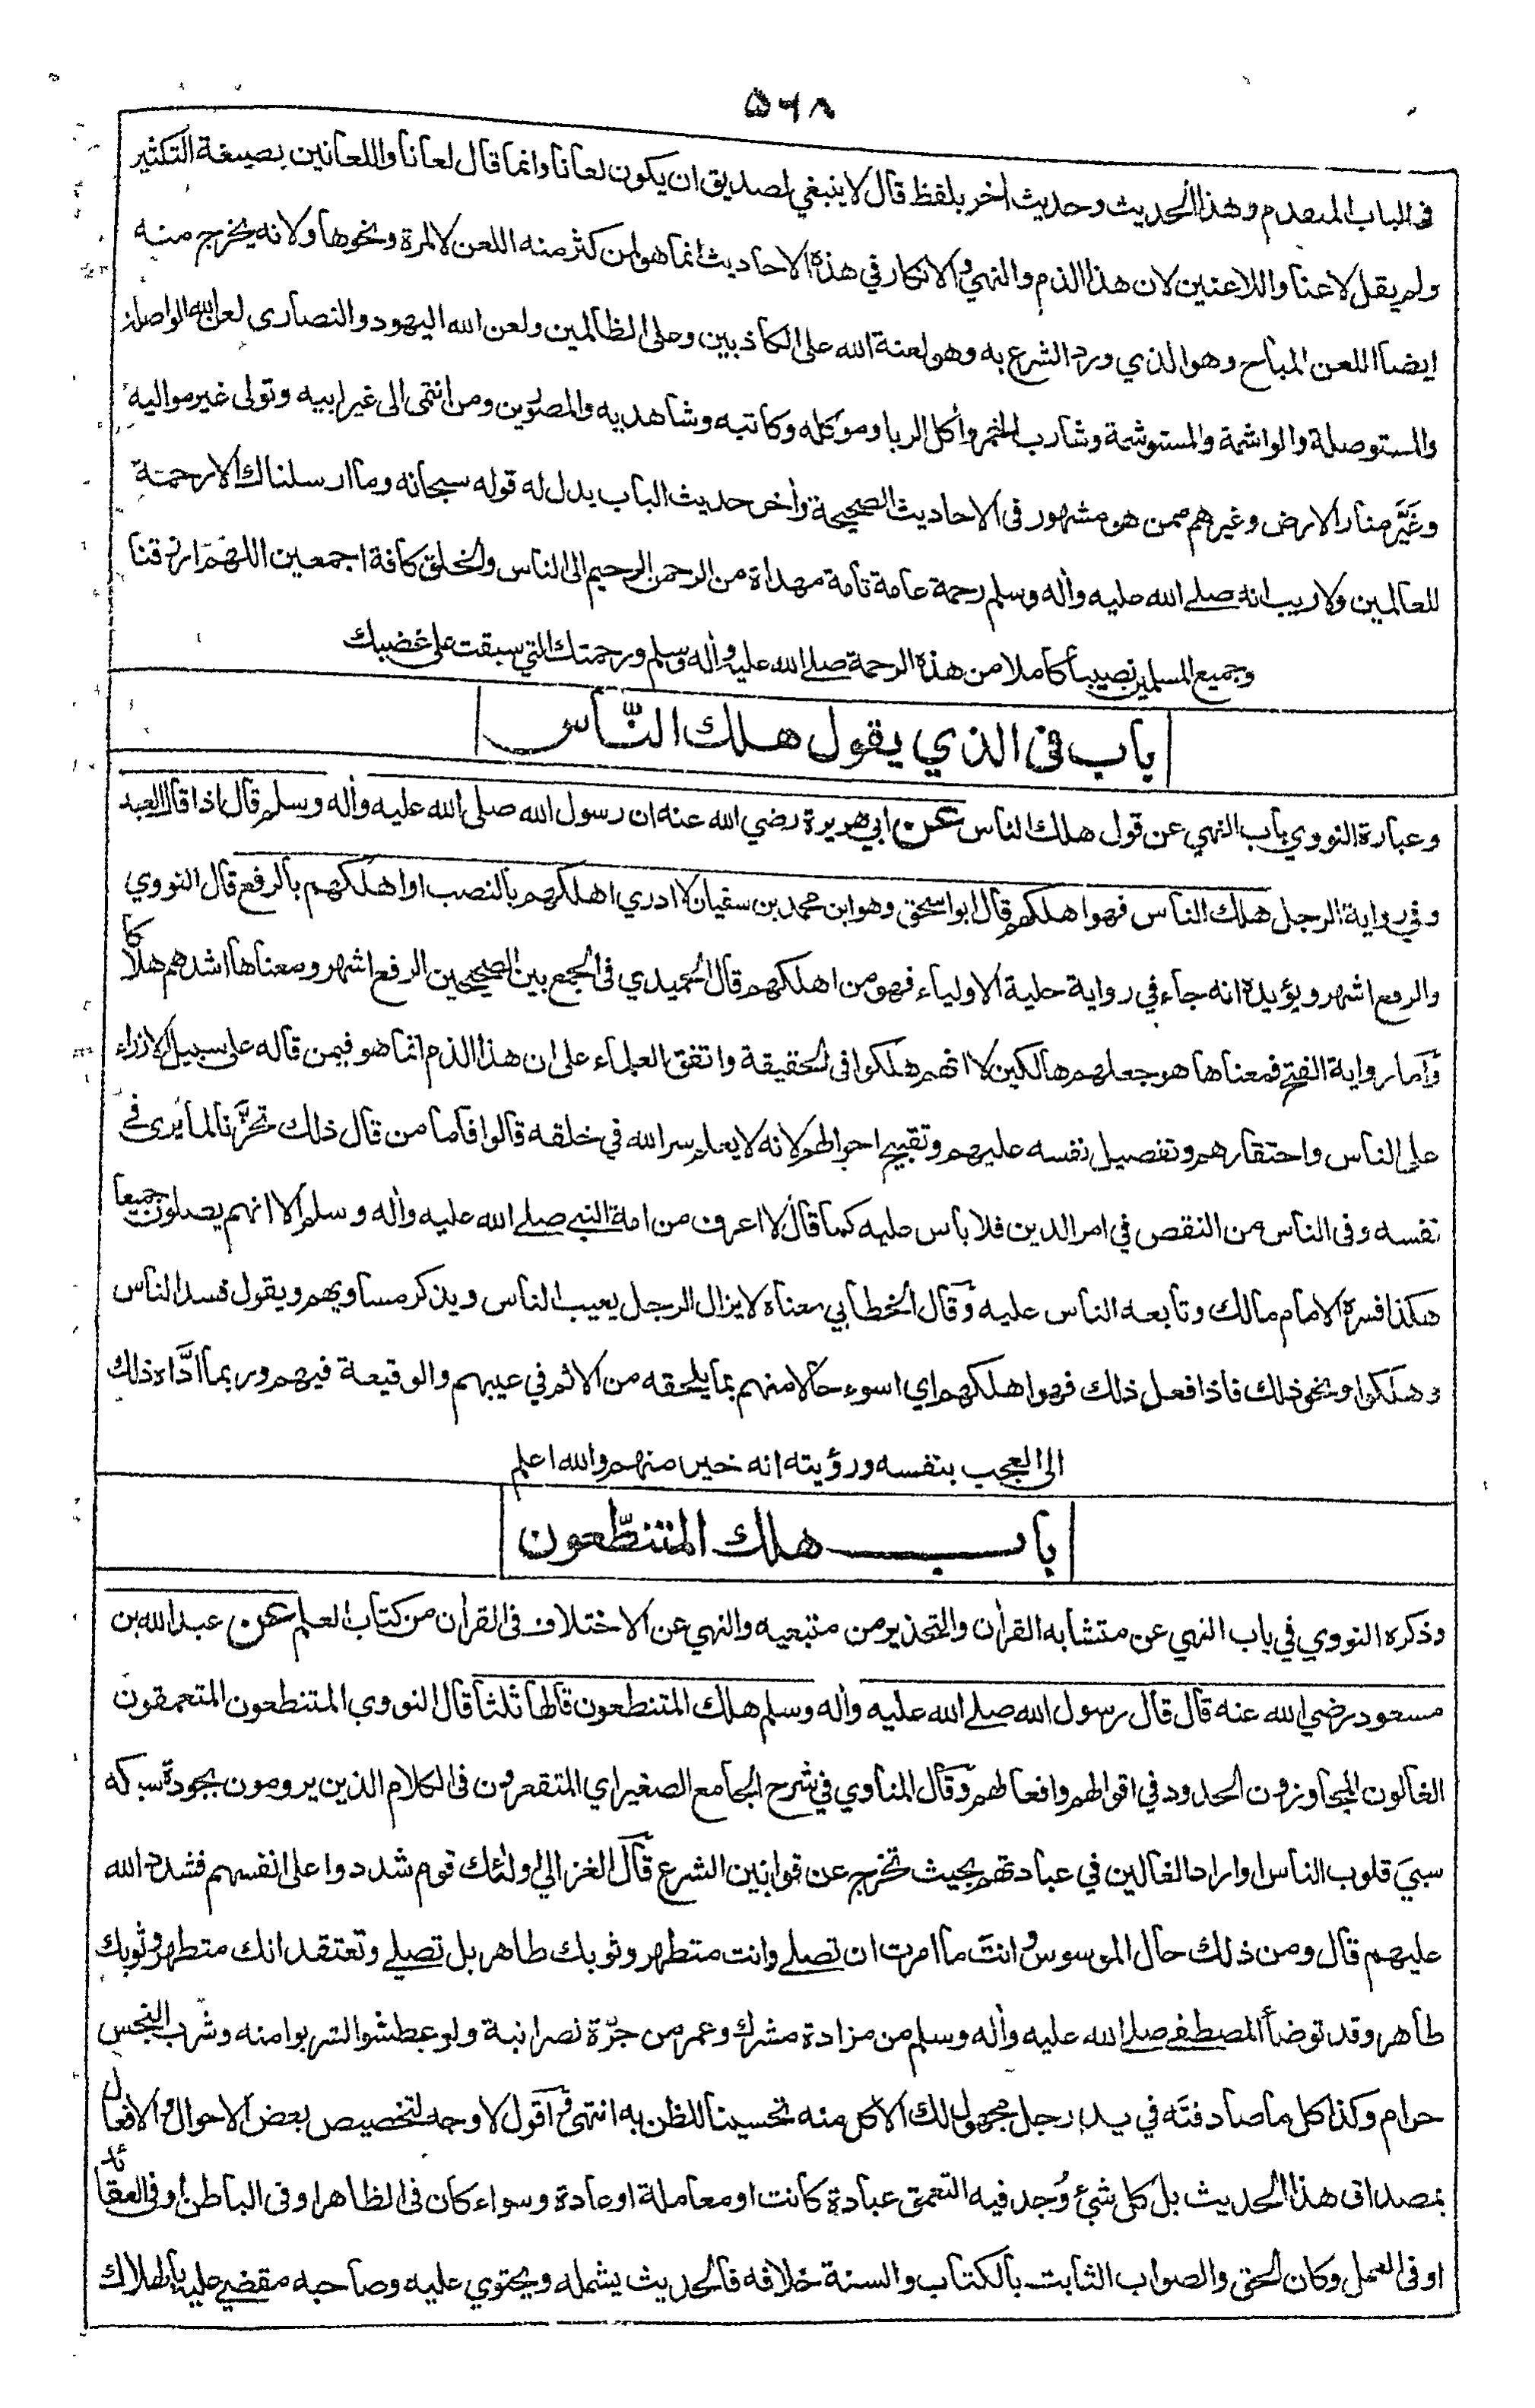 ٥٦٨
فى الباب المتقدم وهذا الحديث وحديث أخر بلفظ قال لا ينبغي لصديق ان يكون لعانا وانما قال لعانا واللعانين بصيغة التكثير
ولم يقل لاعنا واللاعنين لان هذا الذم والنهي والانكار في هذة الاحاديث انما هو لمن كثر منه اللعن لا لمرة ونحوها ولانه يخرج منه
ايضا اللعن المباح وهو الذي ورد الشرع به وهو لعنة الله على الكاذبين وعلى الظالمين ولعن الله اليهود والنصارى لعن الله الواصلة
والمستوصلة والواشمة والمستوشمة وشارب الخمر وأكل الربا وموكله وكاتبه وشاهديه والمصورين ومن انتمى الى غير ابيه وتولى غير مواليه
وغيَّر منار الارض وغيرهم ممن هو مشهور فى الاحاديث الصحيحة وأخر حديث الباب يدل له قوله سبحانه وما ارسلناك الا رحمة
للعالمين ولا ريب انه صلے الله عليه وأله وسلم رحمة عامة تامة مهداة من الرحمن الرحيم الى الناس والخلق كافة اجمعين اللهم ارزقنا
وجميع المسلمين نصيبا كاملا من هذة الرحمة صلے الله عليه وأله وسلم ورحمتك التي سبقت على غضبك
باب فى الذي يقول هلك النّاس
وعبارة النووي باب النهي عن قول هلك الناس عن ابي هريرة رضي الله عنه ان رسول الله صلى الله عليه وأله وسلم قال اذا قال العبد
وفي رواية الرجل هلك الناس فهو اهلكهم قال ابو اسحق وهو ابن محمد بن سفيان لا ادري اهلكهم بالنصب او اهلكهم بالرفع قال النووي
والرفع اشهر ويؤيدة انه جاء في رواية حلية الاولياء فهو من اهلكهم قال الحميدي فى الجمع بين الصحيحين الرفع اشهر ومعناها اشدهم هلاكا
وأما رواية الفتح فمعناها هو جعلهم هالكين لا انهم هلكوا فى الحقيقة واتفق العلماء على ان هذا الذم انما هو فيمن قاله على سبيل الازراء
على الناس واحتقارهم وتفضيل نفسه عليهم وتقبيح احوالهم لانه لا يعلم سر الله في خلقه قالوا فاما من قال ذلك تحزُّنا لما يرى فے
نفسه وفى الناس من النقص في امر الدين فلا باس عليه كما قال لا اعرف من امة النبي صلے الله عليه وأله وسلم الا انهم يصلون جميعا
هكذا فسرة الامام مالك وتابعه الناس عليه وقال الخطابي معناة لا يزال الرجل يعيب الناس ويذكر مساويهم ويقول فسد الناس
وهلكوا ونحو ذلك فاذا فعل ذلك فهو اهلكهم اي اسوء حالا منهم بما يلحقه من الاثم في عيبهم والوقيعة فيهم وربما ادَّاه ذلك
الى العجب بنفسه ورؤيته انه خير منهم والله اعلم
باب هلك المتنطّعون
وذكره النووي في باب النهي عن متشابه القرأن والتحذير من متبعيه والنهي عن الاختلاف فى القرأن من كتاب العلم عن عبد الله بن
مسعود رضي الله عنه قال قال رسول الله صلے الله عليه وأله وسلم هلك المتنطعون قالها ثلثا قال النووي المتنطعون المتعمقون
الغالون المجاوزون الحدود في اقوالهم وافعالهم وقال المناوي في شرح الجامع الصغير اي المتقعرون فى الكلام الذين يرومون بجودة سبكه
سبيَ قلوب الناس او اراد الغالين في عبادتهم بحيث تخرج عن قوانين الشرع قال الغزالي اولئك قوم شددوا على انفسهم فشدد الله
عليهم قال ومن ذلك حال الموسوس وانت ما امرت ان تصلے وانت متطهر وثوبك طاهر بل تصلے وتعتقد انك متطهر وثوبك
طاهر وقد توضأ المصطفے صلے الله عليه وأله وسلم من مزادة مشرك وعمر من جرّة نصرانية ولو عطشوا لشربوا منه وشرب النجس
حرام وكذا كل ما صادفتَه في يد رجل مجهول لك الاكل منه تحسينا للظن به انتهى وأقول لا وجه لتخصيص بعض الاحوال والافعال
بمصداق هذا الحديث بل كل شيئ وُجد فيه التعمق عبادة كانت او معاملة او عادة وسواء كان فى الظاهر او فى الباطن او فى العقائد
او فى العمل وكان الحق والصواب الثابت بالكتاب والسنة خلافه فالحديث يشمله ويحتوي عليه وصاحبه مقضے عليه بالهلاك